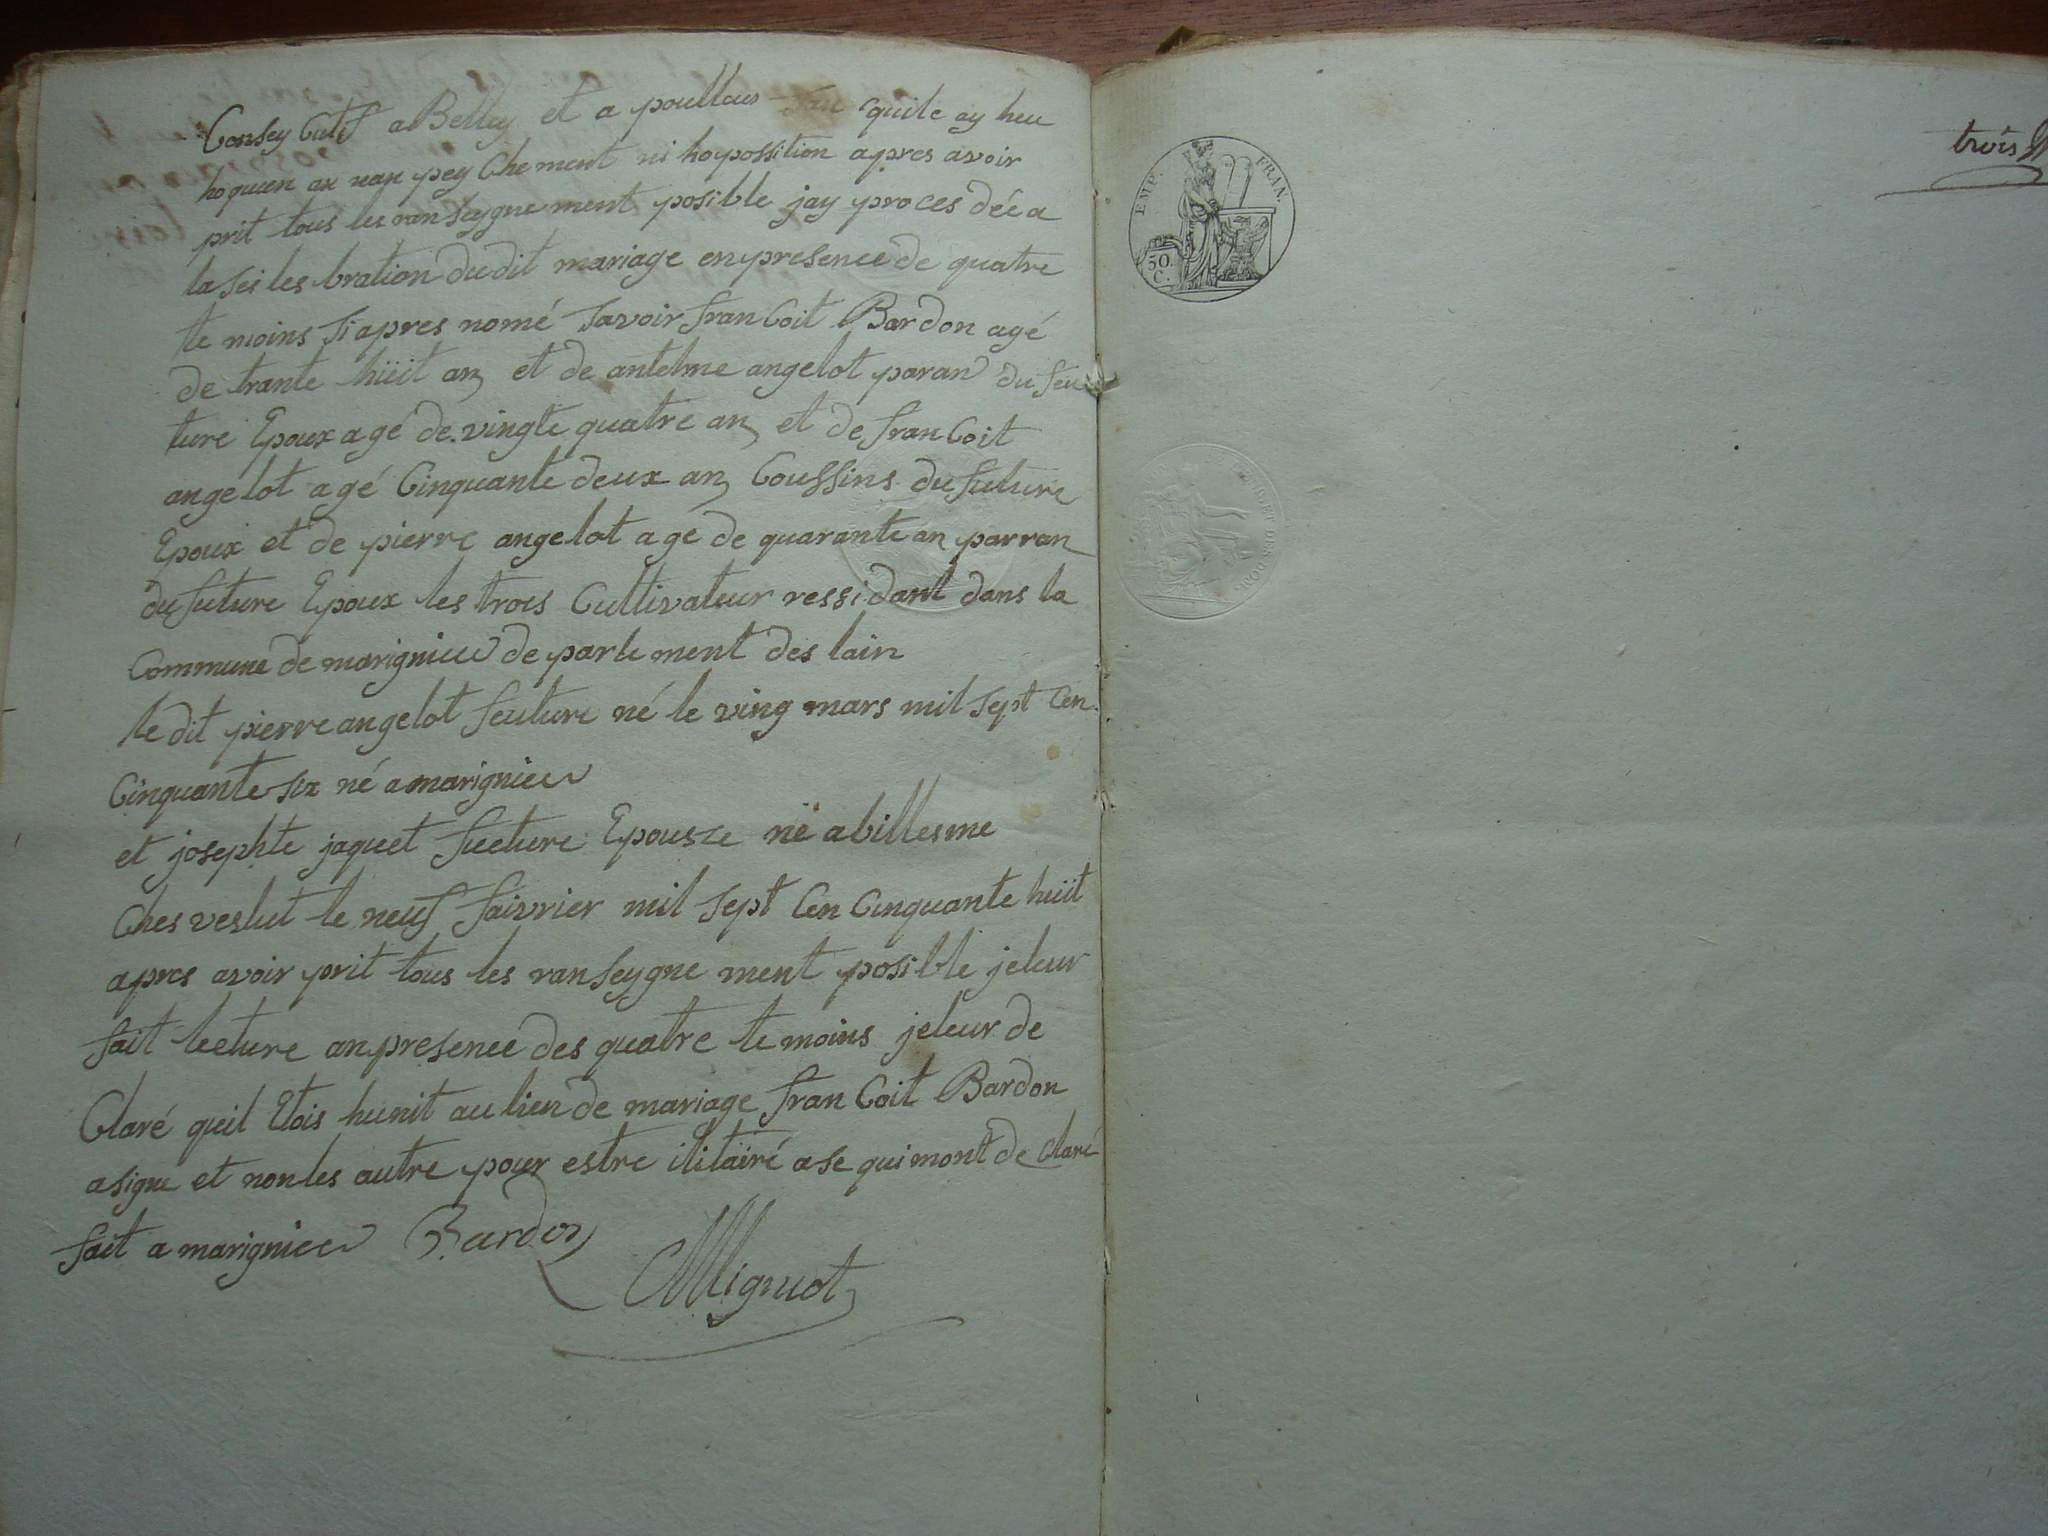 Consey Cutif a Belley et a poullous san quile ay heu
hoqueun an nan pey Chement ni hopossition apres avoir
prit tous les ranseygne ment posible jay proces dée a
la sei les bration du dit mariage en presence de quatre
te moins si apres nomé savoir fran Coit Bardon agé
de trante hüit an et de antelme angelot paran du feu
ture Epoux agé de vingte quatre an et de fran Coit
angelot agé Cinquante deux an Coussins du future
Epoux et de pierre angelot age de quarante an parran
du future Epoux les trois Cultivateur ressidant dans la
Commune de marignieu de parte ment des lain
le dit pierre angelot feuture né le ving mars mil sept Cen
Cinquante six né a marignieu
et josephte jaquet fueture Epousze né abillesme
Ches veslut le neuf faivrier mil sept Cen Cinquante hüit
apres avoir prit tous les ranseygne ment posible jeleur
fait lecture anpresence des quatre te moins jeleur de
Claré queil Etois hunit au lien de mariage fran Coit Bardon
asigne et non les autre pour estre ilitairé a se qui mont de Claré
fait a marignieu Bardon
Mignot
EMP. FRAN.
50.
C.
trois